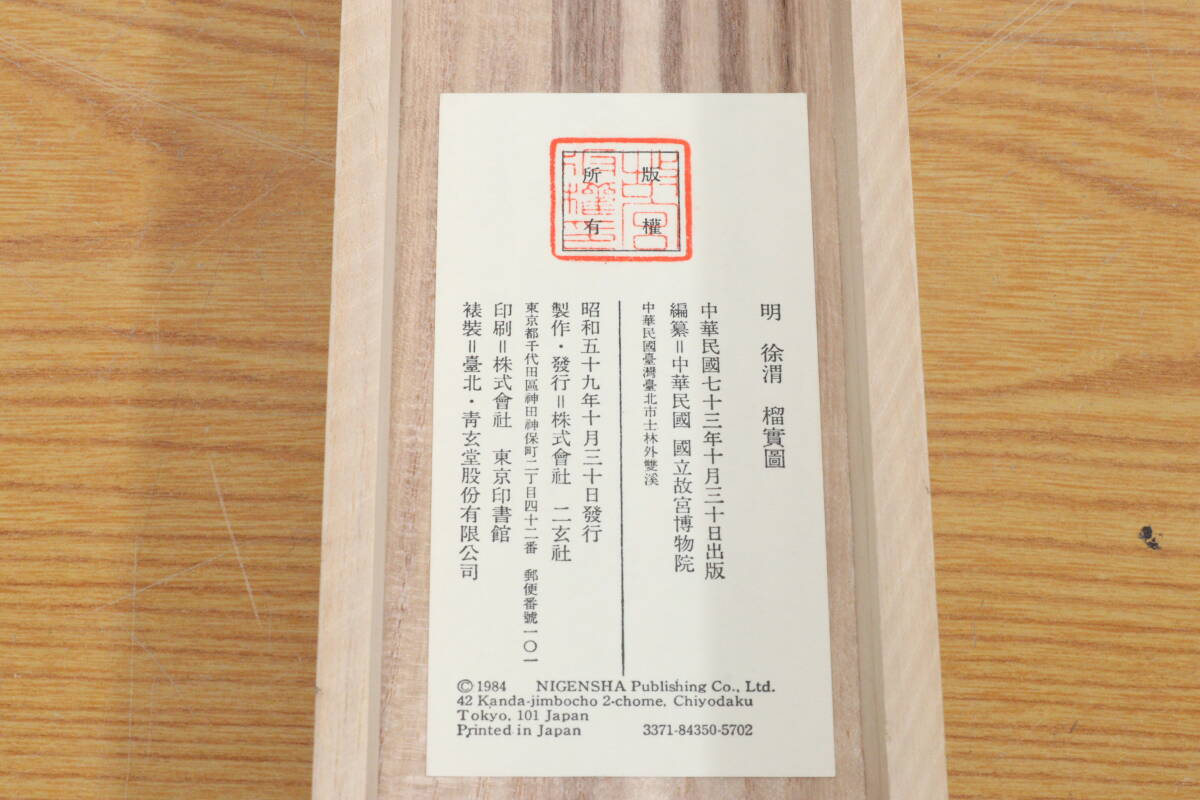 版權
所有
明 徐渭 榴實圖
中華民國七十三年十月三十日出版
編纂＝中華民國 國立故宮博物院
中華民國臺灣臺北市士林外雙溪
昭和五十九年十月三十日發行
製作・發行＝株式會社 二玄社
東京都千代田區神田神保町二丁目四十二番 郵便番號一〇一
印刷＝株式會社 東京印書館
裱裝＝臺北・靑玄堂股份有限公司
©1984 NIGENSHA Publishing Co., Ltd.
42 Kanda-jimbocho 2-chome, Chiyodaku
Tokyo, 101 Japan
Printed in Japan 3371-84350-5702